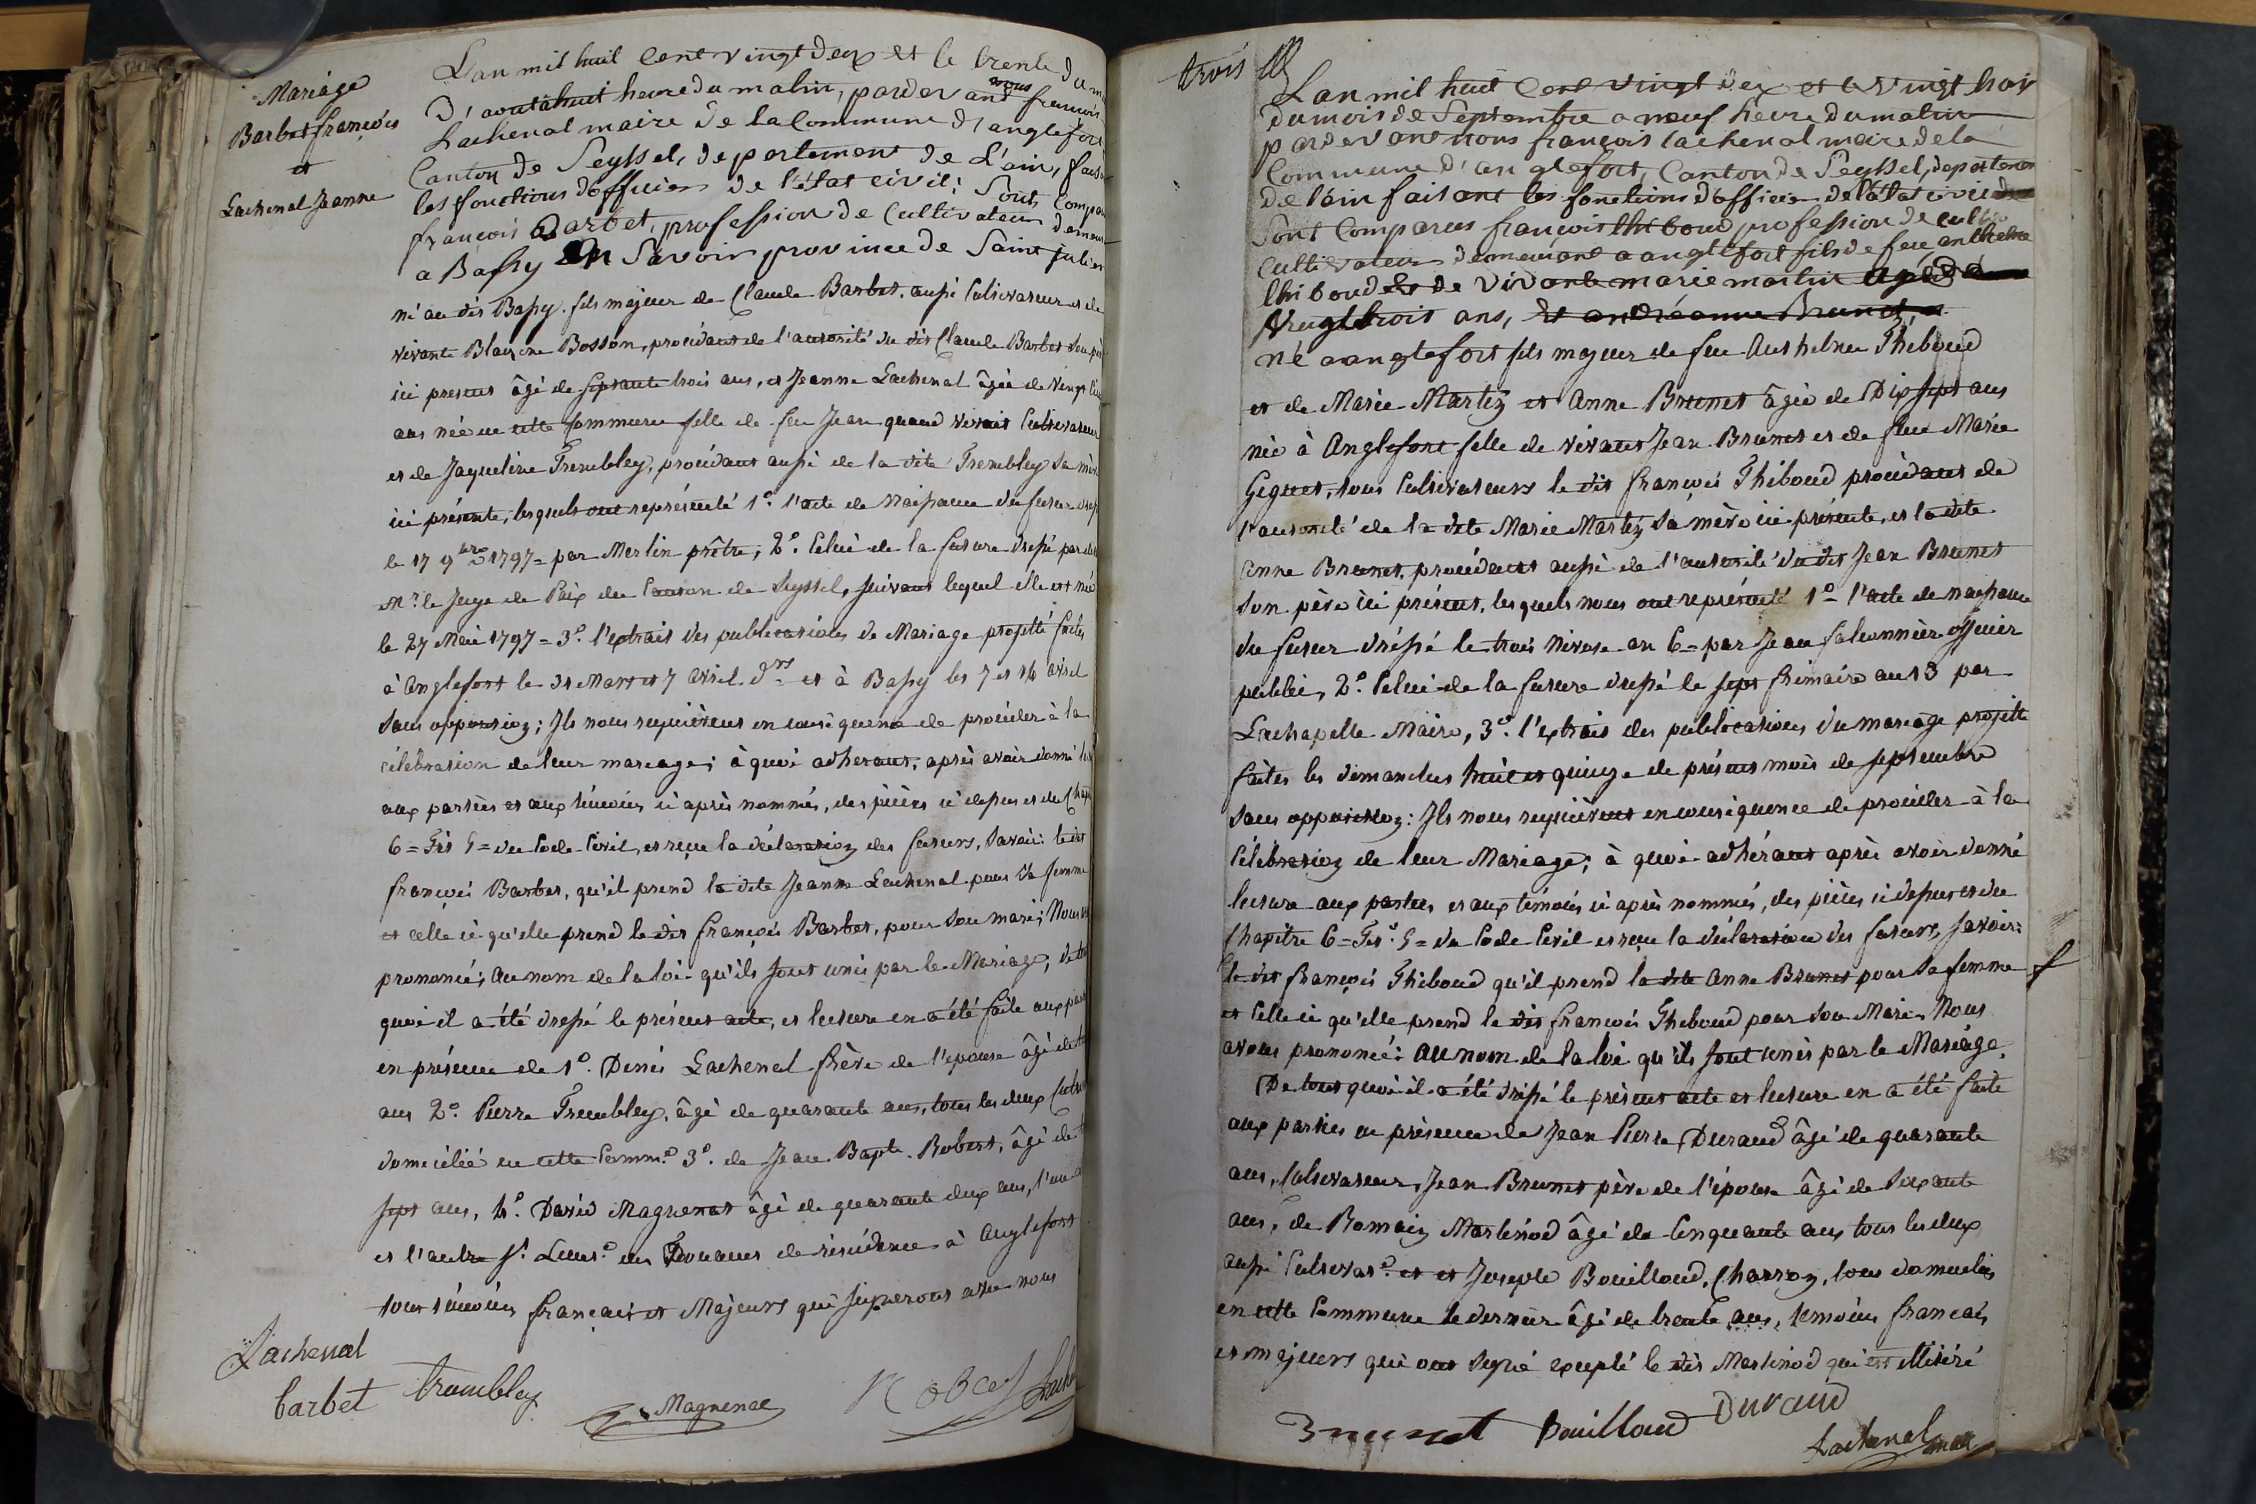 Mariage
Barbet françois
et
Lachenal Jeanne
L'an mil huit Cent vingt deux et le trente du m
D'aout à huit heure du matin, pardevant nous françois
Lachenal maire de la Commune d'anglefort
Canton de Seyssel, departement de L'ain, fais
les fonctions d'officier de l'état civil; Sont Compar
françois Barbet, profession de Cultivateur demeur
a Bassy en Savoir province de Saint julien
né au dit Bassy. fils majeur de Claude Barbet, aussi Cultivateur et de
vivante Blaisine Bosson, procédant de l'autorité du dit Claude Barbet son père
ici present âgé de septante trois ans, et Jeanne Lachenal âgée de vingt
ans née en cette Commune fille de feu Jean quand vivait Cultivateur
et de Jaqueline Trembley, procédant aussi de la dite Trembley sa mère
ici présente, lesquels ont représenté 1° l'acte de Naissance du futur
le 17 9bre 1797 = par Merlin prêtre; 2° Celui de la future dressé par
Mr le Juge de Paix du Canton de Seyssel, suivant lequel elle est née
le 27 Mai 1797 = 3° l'extrait des publications de Mariage projetté faites
à Anglefort le 31 Mars et 7 avril drs et à Bassy les 7 et 14 avril
sans opposition; Ils nous requièrent en conséquence de procéder à la
célébration de leur mariage; à quoi adherant, après avoir donné
aux parties et aux témoins ci après nommés, des pièces ci dessus et du Chap
6 = Tit 5 = du Code Civil, et reçu la déclaration des futurs, Savoir: le dit
françois Barbet, qu'il prend la dite Jeanne Lachenal pour sa femme
et celle ci qu'elle prend le dit françois Barbet, pour son mari; Nous
prononcé; au nom de la loi qu'ils sont unis par le Mariage, de
quoi il a été dressé le présent acte, et lecture en a été faite aux
en présence de 1° Denis Lachenal frère de l'epouse âgé de
ans 2° Pierre Trembley, âgé de quarante ans, tous les deux
domiciliés en cette Comm.e 3° de Jean Bapte Robert, âgé de
sept ans, 4° David Magnenat âgé de quarante deux ans, l'un
et l'autre des Douanes de résidence à Anglefort
tous témoins français et Majeurs qui signerons avec nous
Lachenal
barbet trembley Magnenat
trois
L'an mil huit Cent vingt deux et le vingt troi
du mois de Septembre a neuf heure du matin
pardevant nous françois lachenal maire de la
Commune d'anglefort, Canton de Seyssel, departement
de l'ain faisant les fonctions d'officier de l'état civil
Sont Comparus françois thiboud, profession de
Cultivateur demeurant a anglefort fils de feu anthelme
thiboud et de vivante marie martin agé de
vingt trois ans, et andréanne Brunet,
né a anglefort fils majeur de feu Anthelme Thiboud
et de Marie Martin et Anne Brunet âgée de Dix sept ans
née à Anglefort fille de vivant Jean Brunet et de feue Marie
Geguet, tous Cultivateurs le dit françois Thiboud procédant de
l'autorité de la dite Marie Martin sa mère ici présente, et la dite
Anne Brunet, procédant aussi de l'autorité du dit Jean Brunet
son père ici présent, lesquels nous ont représenté 1° l'acte de naissance
du futur dréssé le trois Nivose an 6 = par Jean falconnier officier
public, 2° Celui de la future dressé le sept frimaire an 13 par
Lachapelle Maire, 3° l'extrait des publications du mariage projetté
faites les dimanches huit et quinze de présent mois de septembre
sans opposition: Ils nous requièrent en conséquence de procéder à la
Célébration de leur Mariage; à quoi adhérant après avoir donné
lecture aux parties et aux témoins ci après nommés, des pièces ci dessus et du
Chapitre 6 = Tit. 5 = du Code Civil et reçu la déclaration des futurs, savoir:
le dit françois Thiboud qu'il prend la dite Anne Brunet pour sa femme
et Celle ci qu'elle prend le dit françois Thiboud pour son Mari. Nous
avons prononcé: au nom de la loi qu'ils sont unis par le Mariage.
De tout quoi il a été dréssé le présent acte et lecture en a été faite
aux parties en présence de Jean Pierre Durand âgé de quarante
ans, Cultivateur, Jean Brunet père de l'épouse âgé de soixante
ans, de Romain Martinod âgé de Cinquante ans tous les deux
aussi Cultivat.s et Joseph Bouilloud, Charron, tous domiciliés
en cette Commune le dernier âgé de trente ans, témoins français
et majeurs qui ont signé excepté le dit Martinod qui est illitéré
Brunet Bouilloud Durand
Lachenal maire